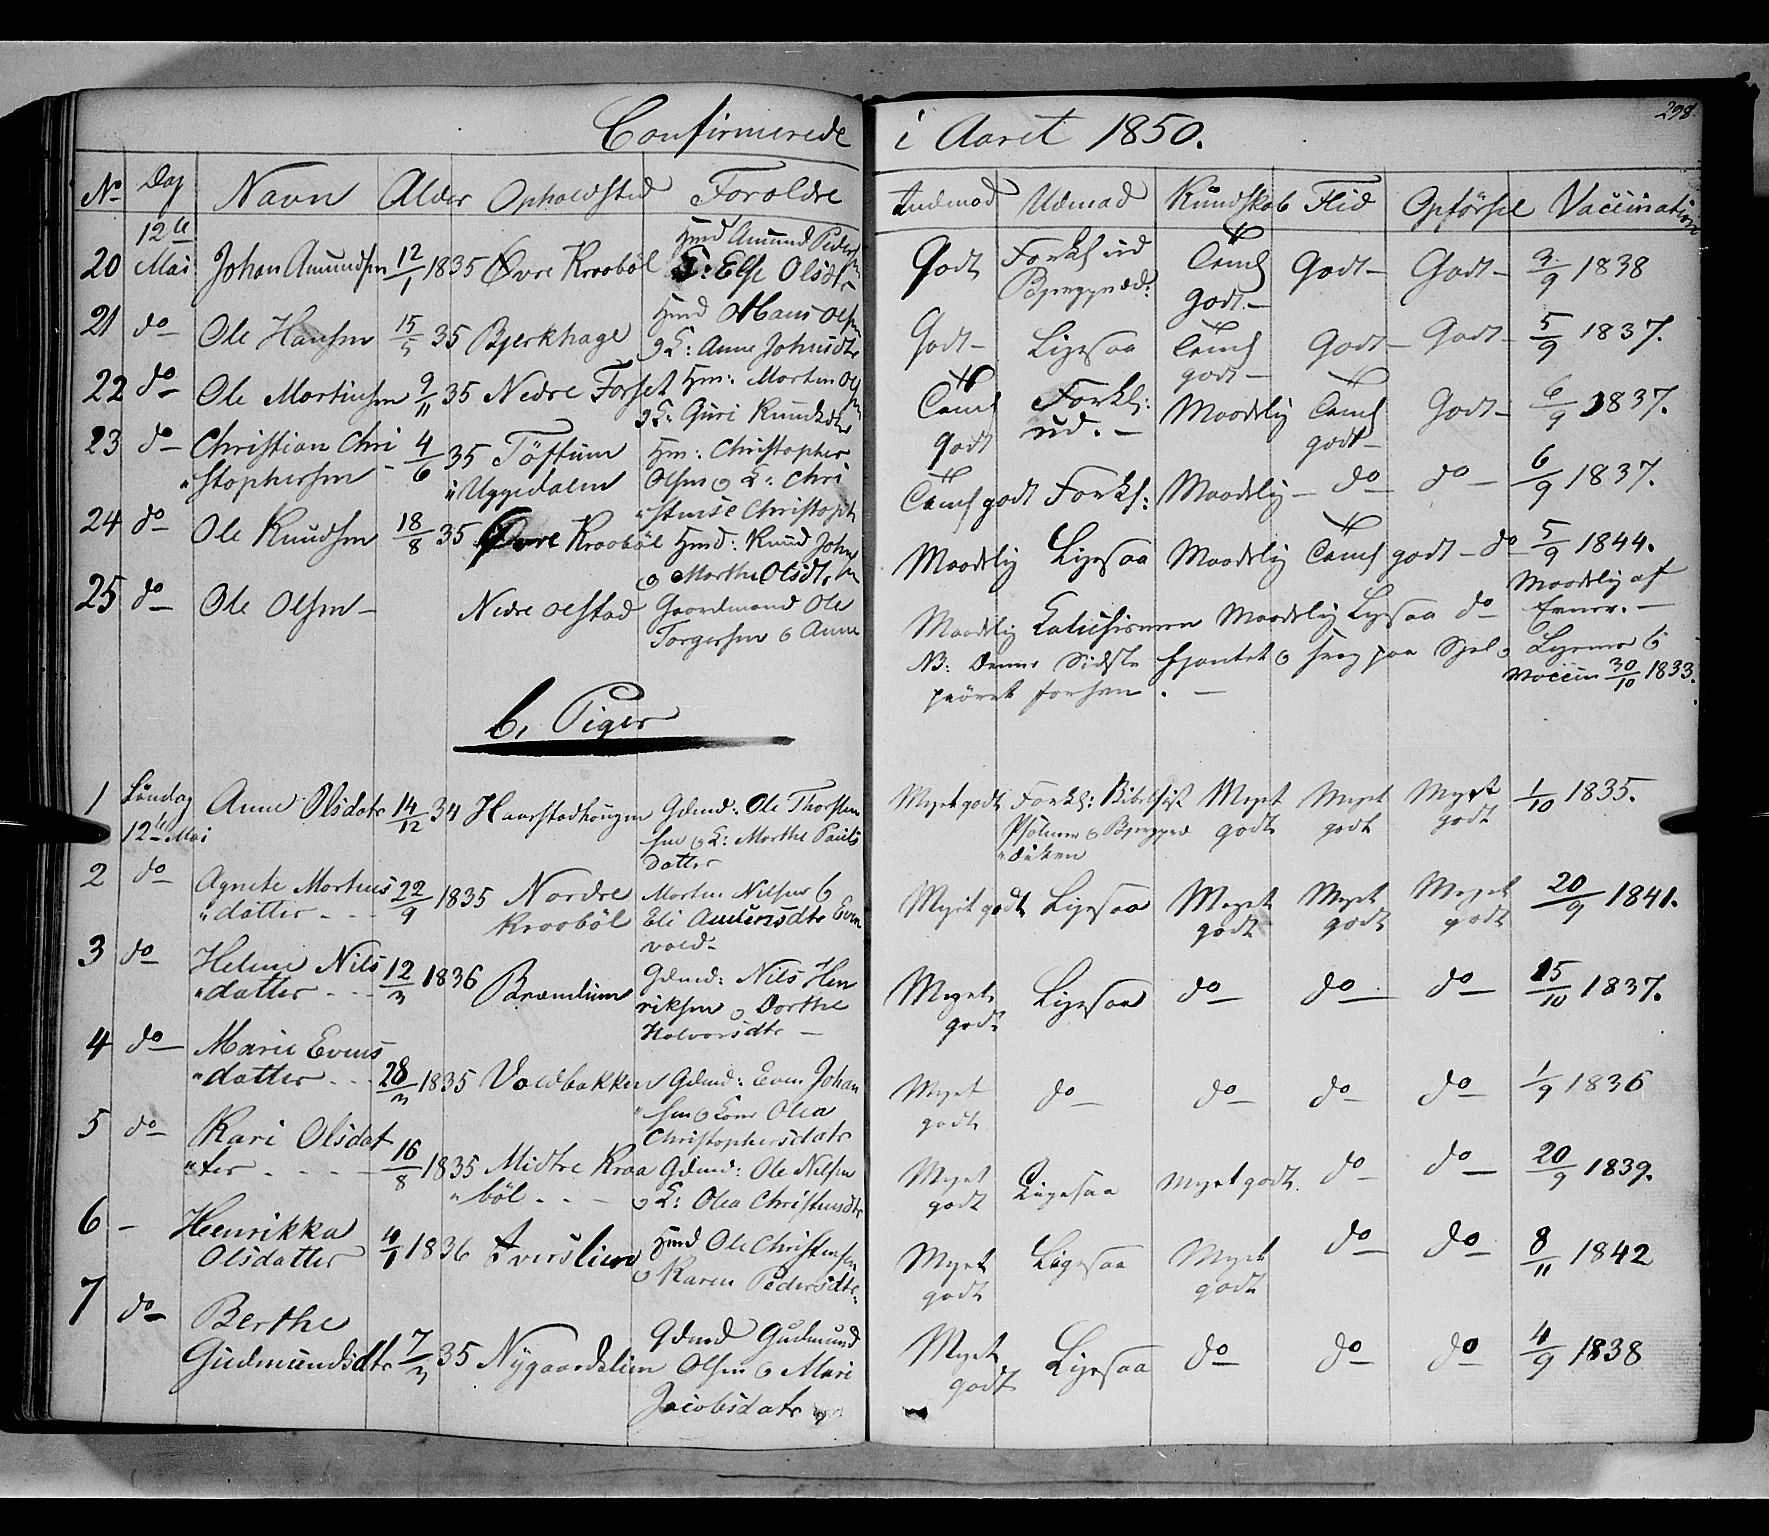 Confirmerede i Aaret 1850.
298.
No Dag Navn Alder Opholdsted Foreldre Indenad Udenad Kundskab Flid Opførsel Vaccination
20 12te Mai Johan Amundsen 12/1 1835 Øvre Kroobøl Hmd Amund Peders
K: Else Olsdtr Godt Forkl: ud Godt Godt 3/9 1838
21 do Ole Hansen 15/5 35 Bjerkhage Hmd Hans Olsen
o K: Anne Johnsdtr Godt Ligesaa Temml godt Godt Godt 5/9 1837.
22 do Ole Mortinsen 9/11 35 Nedre Forset Hm: Morten Olsen
o K: Guri Knudsdtr Temml godt Forkl: ud. Maadelig Temml godt Godt 6/9 1837.
23 do Christian Chri
"stophersen 4/6 35 Töftum
i Uggedalen Hm: Christopher
Olsen o K: Chri
"stense Christoph Temml godt Forkl: Maadelig do do 6/9 1837.
24 do Ole Knudsen 18/8 35 Øvre Kroobøl Hmd: Knud Johns
o Marthe Olsdtr Maadelig Ligesaa Maadelig Temml godt do 5/9 1844.
25 do Ole Olsen Nedre Olstad Gaardmand Ole
Torgersen o Anne Maadelig Katechismen Maadelig Ligesaa do Maadelig af
Evner.
NB: Denne Sidste o paa Sjel o Legeme
Vaccin 30/10 1833.
prövet forhen.
b, Piger
1 Søndag
12te Mai Anne Olsdatr 14/12 34 Haarstadhougen Gdmd: Ole Thorsten
sen o K: Marthe Pauls
datter Meget godt Forkl: Bibelhist
Psalmer o
Meget godt Meget godt Meget godt 1/10 1835.
2 do Agnete Mortins
"datter 22/9 1835 Nordre
Kroobøl Morten Nilsen o
Eli Andersdtr Even
vold Meget godt Ligesaa Meget godt Meget godt Meget godt 20/9 1841.
3 do Helene Nils
"datter 12/3 1836 Brændlien Gdmd: Nils Hen
riksen o Dorthe
Halvorsdtr Meget godt Ligesaa do do do 15/10 1837.
4 do Marie Evens
"datter 28/3 1835 Voldbakken Gdmd: Even Johan
"sen o Kone Olea
Christophersdatr Meget godt do do do do 1/9 1836
5 do Kari Olsdat
"ter 16/8 1835 Midtre Kroa
"böl Gdmd: Ole Nilsen
o K: Olea Christensdtr Meget godt Ligesaa Meget godt do do 20/9 1839.
6 Henrikka
Olsdatter 4/1 1836 Iverslien Hmd Ole Christensen
o Karen Pedersdtr: Meget godt Ligesaa Meget godt do do 8/11 1842
7 do Berthe
Gudmundsdtr 7/3 35 Nygaardslien Gdmd Gudmund
Olsen o Mari
Jacobsdatr Meget godt Ligesaa do do do 4/9 1838